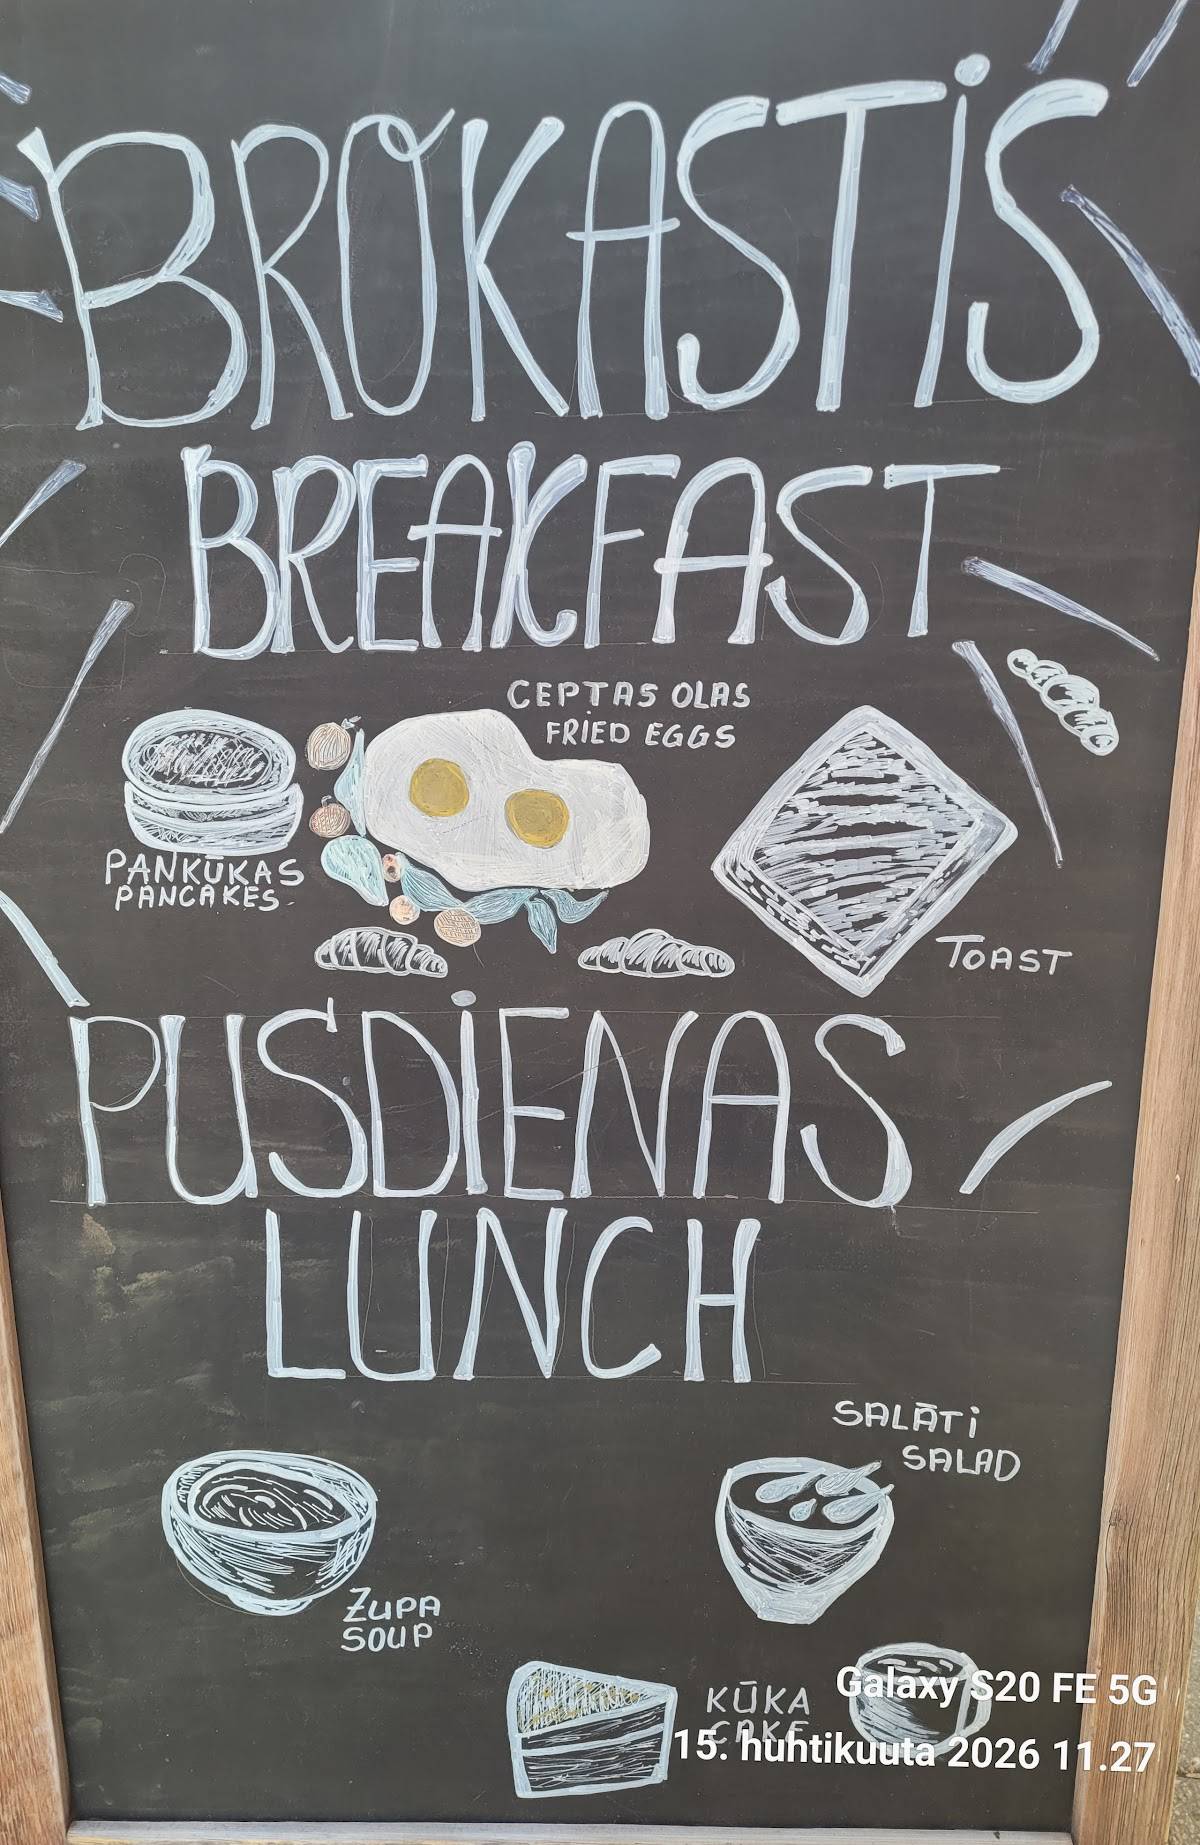 BROKASTIS
BREAKFAST
CEPTAS OLAS
FRIED EGGS
PANKŪKAS
PANCAKES.
TOAST
PUSDIENAS
LUNCH
SALĀTI
SALAD
ZUPA
SOUP
KŪKA
CAKE
Galaxy S20 FE 5G
15. huhtikuuta 2026 11.27